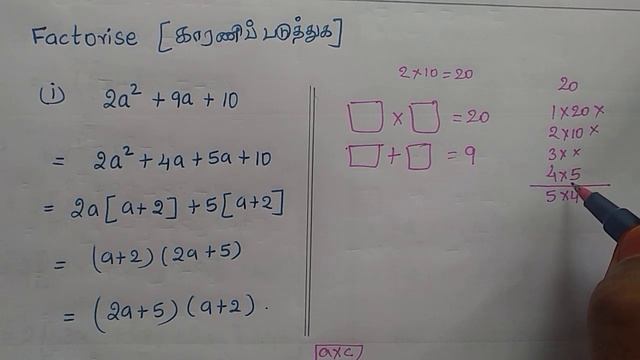 Factorise [காரணிப் படுத்துக]
(i) 2a² + 9a + 10
= 2a² + 4a + 5a + 10
= 2a[a+2] + 5[a+2]
= (a+2) (2a+5)
= (2a+5) (a+2).
2×10 = 20
□ × □ = 20
□ + □ = 9
20
1×20 ×
2×10 ×
3× ×
4×5
5×4
a×c